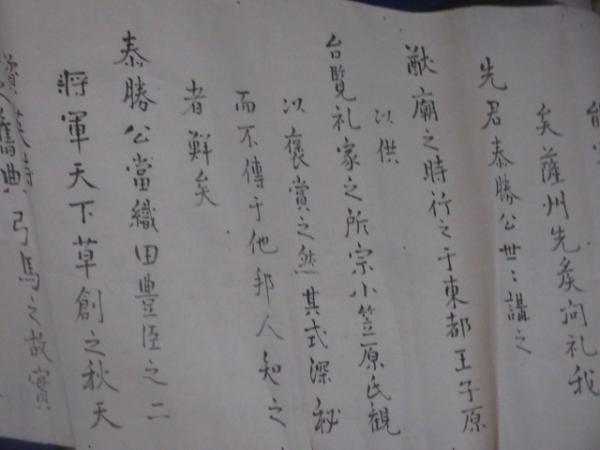 矣薩州先矦向礼我
先君泰勝公世〻講之
猷廟之時行之于東都王子原
以供
台覧礼家之所宗小笠原氏観
以褒賞之然其式深秘
而不傳于他邦人知之
者鮮矣
泰勝公當織田豊臣之二
將軍天下草創之秋天
舊典弓馬之故實